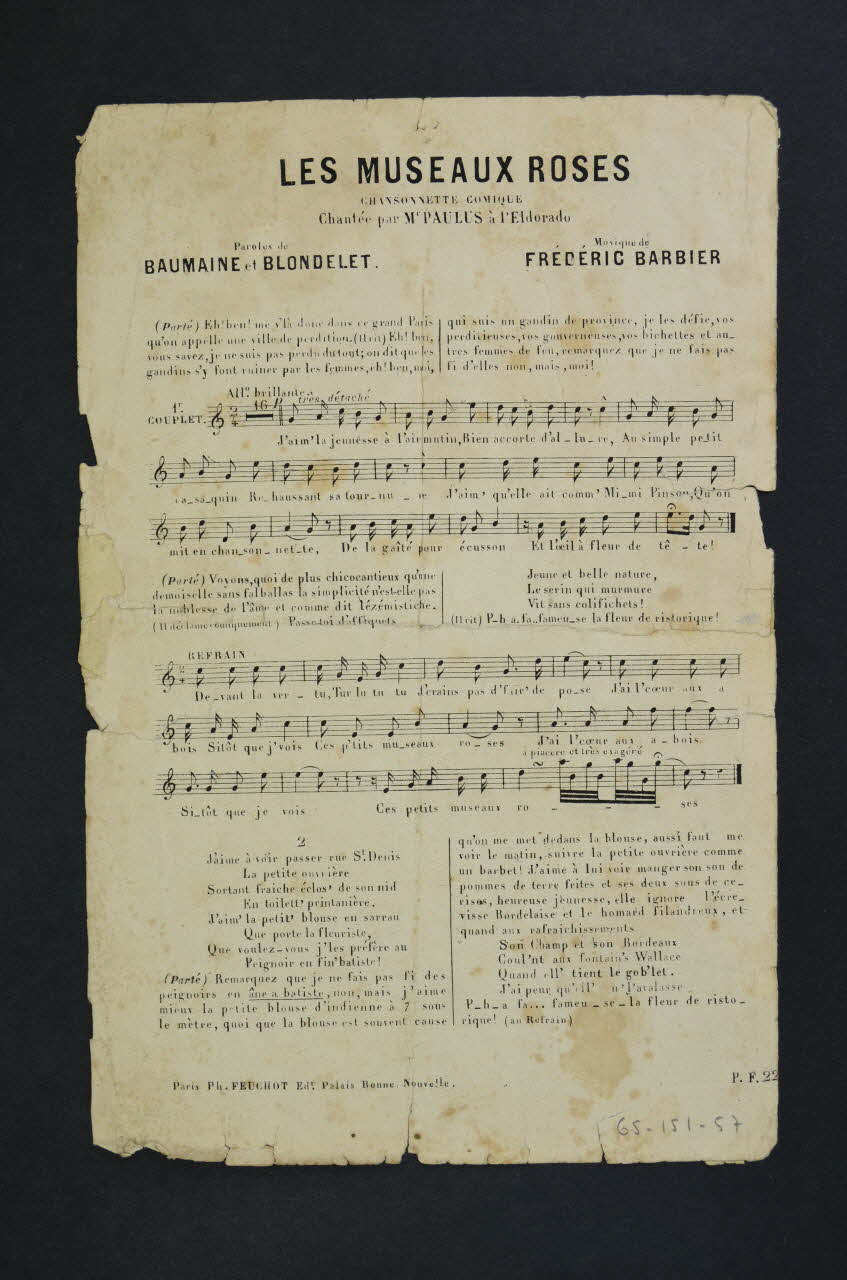 LES MUSEAUX ROSES
CHANSONNETTE COMIQUE
Chantée par Mr PAULUS à l'Eldorado
Paroles de
BAUMAINE et BLONDELET.
Musique de
FRÉDÉRIC BARBIER
(Parlé) Eh! ben! me v'là donc dans ce grand Paris
qu'on appelle une ville de perdition. (Il rit) Eh! ben,
vous savez, je ne suis pas perdu du tout; on dit que les
gandins s'y font ruiner par les femmes, eh! ben, moi,
qui suis un gandin de province, je les défie, vos
perditieuses, vos gouverneuses, vos bichettes et au-
tres femmes de feu, remarquez que je ne fais pas
fi d'elles non, mais, moi!
All.º brillante
16 p très détaché
1r
COUPLET.
J'aim' la jeunésse à l'air mutin, Bien accorte d'al-lu-re, Au simple pe-tit
ca-sa-quin Re-haussant sa tour-nu-re J'aim' qu'elle ait comm' Mi-mi Pinson, Qu'on
mit en chan-son-net-te, De la gaîté pour écusson Et l'œil à fleur de tê-te!
(Parlé) Voyons, quoi de plus chicocantieux qu'une
demoiselle sans falballas la simplicité n'est-elle pas
la noblesse de l'âme et comme dit Tézémistiche.
(Il déclame comiquement) Passe-toi d'affiquets
Jeune et belle nature,
Le serin qui murmure
Vit sans colifichets!
(Il rit) P-h a. fa.. fameu-se la fleur de ristorique!
REFRAIN
De-vant la ver-tu, Tur lu tu tu J'crains pas d'fair' de po-se J'ai l'cœur aux a
bois Sitôt que j'vois Ces p'tits mu-seaux ro-ses J'ai l'cœur aux a-bois.
a piacere et très exagéré
Si-tôt que je vois Ces petits museaux ro - - - ses
2
J'aime à voir passer rue St. Denis
La petite ouvrière
Sortant fraiche éclos' de son nid
En toilett' printanière.
J'aim' la petit' blouse en sarrau
Que porte la fleuriste,
Que voulez-vous j'les préfère au
Peignoir en fin' batiste!
(Parlé) Remarquez que je ne fais pas fi des
peignoirs en âne a batiste, non, mais j'aime
mieux la petite blouse d'indienne à 7 sous
le mètre, quoi que la blouse est souvent cause
qu'on me met dedans la blouse, aussi faut me
voir le matin, suivre la petite ouvrière comme
un barbet! J'aime à lui voir manger son sou de
pommes de terre frites et ses deux sous de ce-
rises, heureuse jeunesse, elle ignore l'écre-
visse Bordelaise et le homard filandreux, et
quand aux rafraichissements
Son Champ et son Bordeaux
Coul'nt aux fontain's Wallace
Quand ell' tient le gob'let.
J'ai peur qu'ell' n'l'avalasse
P-h-a fa... fameu-se-la fleur de risto-
rique! (au Refrain)
Paris Ph. FEUCHOT Edr. Palais Bonne Nouvelle.
P. F. 22
65-151-57